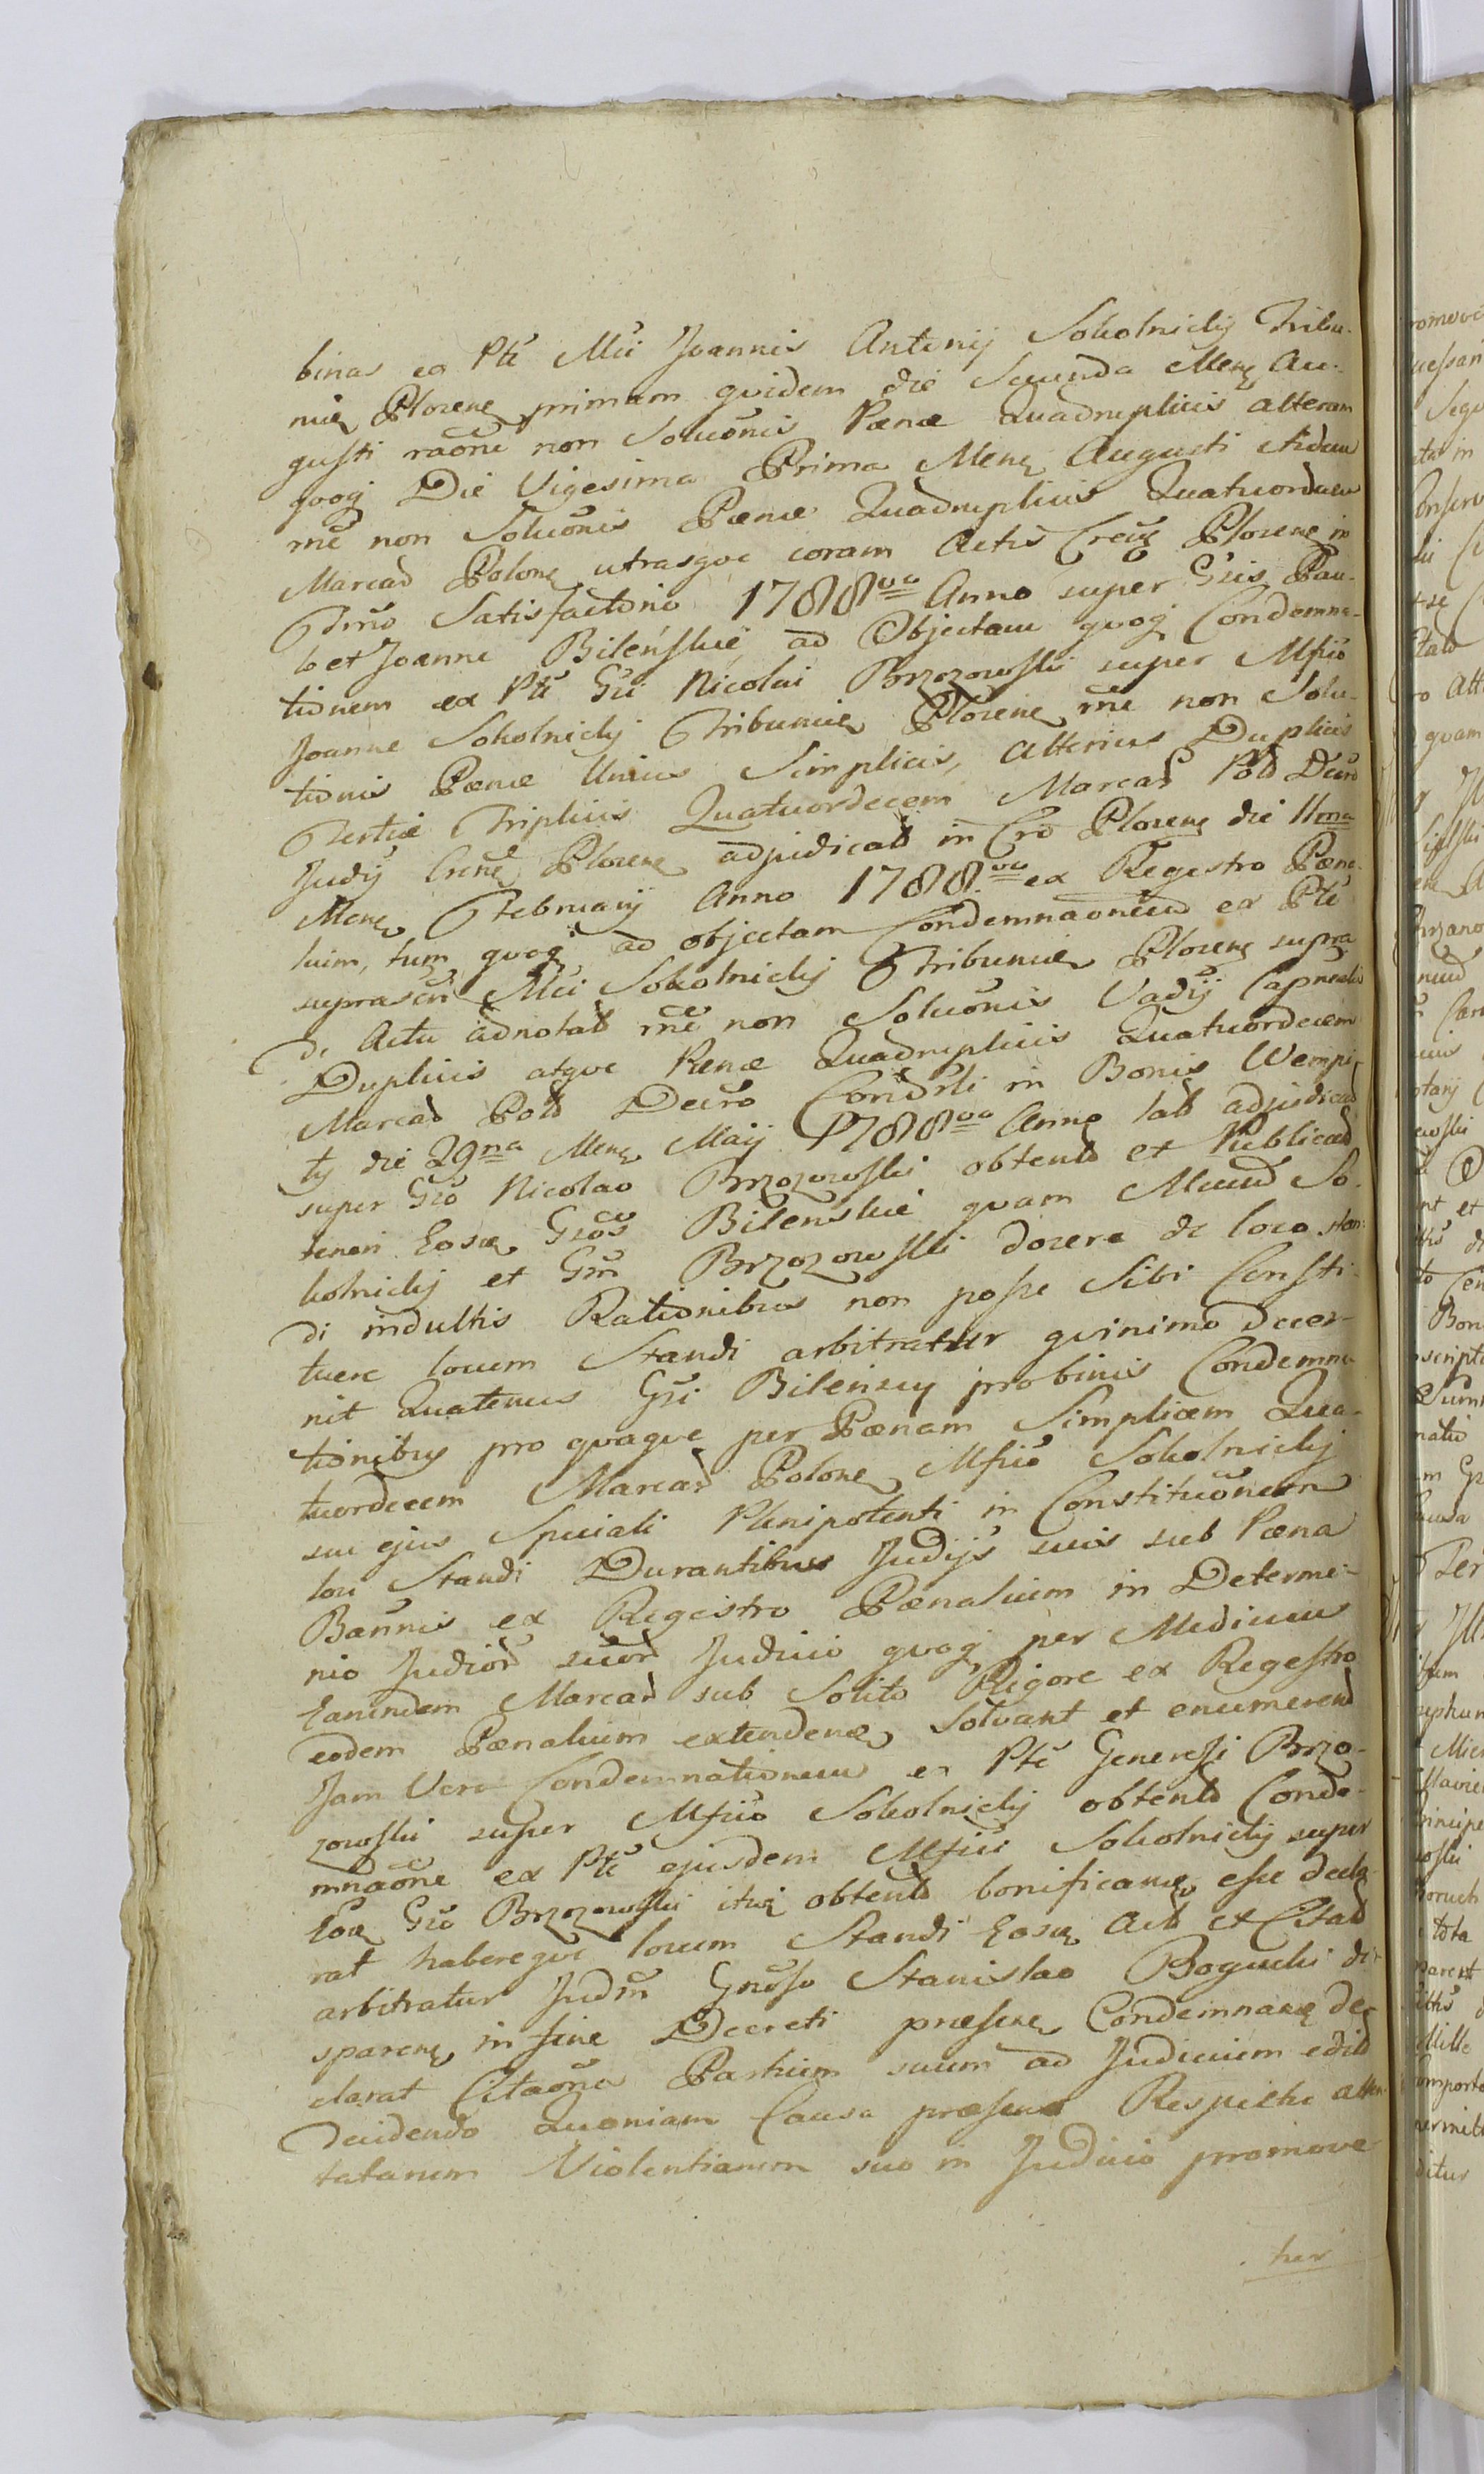 binas ex Pte Mci Joannis Antonij Sokolnicki Tribu-
nie Plocens primam quidem die Secunda Mens Au-
gusti raone non Soluonis Pænæ Quadruplicis alteram
quoq Die Vigesima Prima Mens Augusti itidem
rne non Soluonis Pænæ Quadruplicis Quatuordecem
Marcar Polon utrasque coram Actis Crens Plocens in
Trno Satisfactorio 1788vo Anno super Gsis Pau-
lo et Joanne Bilenskie ad Objectam quoq Condemna-
tionem ex Pte Gsi Nicolai Brzozowski super Mfico
Joanne Sokolnicki Tribunie Plocens rne non Solu-
tionis Pænæ Unius Simplicis, alterius Duplicis
Tertiæ Triplicis Quatuordecem Marcar Pol Decro
Judij Crens Plocens adjudicat in Cro Plocens die 11ma
Mens Februarij Anno 1788vo ex Regestro Pæna-
lium, tum quoq ad objectam Condemnaonem ex Pte
suprascri Mci Sokolnicki Tribunie Plocens supra
de Actu adnotat rne non Soluonis Vadij Capnealis
Duplicis atque Pænæ Quadruplicis Quatuordecem
Marcar Pol Decro Condrli in Bonis Wempi-
ly die 29na Mens Maij 1788vo Anno lat adjudicat
super Gso Nicolao Brzozowski obtent et Publicat
teneri Eosq Gsos Bilenskie quam Mcum So-
kolnicki et Gsm Brzozowski docere de loco stan-
di indultis Rationibus non posse Sibi Consti-
tuere locum Standi arbitratur quinimo decer-
nit Quatenus Gsi Bilenscy pro binis Condemna-
tionibus pro quaque per Pænam Simplicem Qua-
tuordecem Marcar Polon Mfico Sokolnicki
sui ejus Speciali Plenipotenti in Constituonem
loci Standi Durantibus Judijs suis sub Pæna
Bannis ex Regestro Pænalium in Determi-
nio Judior suor Judicio quoq per Medium
Earundem Marcar sub Solito Rigore ex Regestro
eodem Pænalium extenden Solvant et enumerent
Jam Vero Condemnationem ex Pte Generosi Brzo-
zowski super Mfico Sokolnicki obtent Conde-
mnaone ex Pte ejusdem Mfici Sokolnicki super
Eoq Gso Brzozowski itid obtent bonificam esse decla-
rat habereque locum Standi Eosq Act et Citat
arbitratur Judm Gnoso Stanislao Bogucki di-
sparens in fine Decreti præsens Condemnan de-
clarat Citaone Partium suum ad Judicium edit
decidendo Quoniam Causa præsens Respectu atten-
tatarum Violentiarum suo in Judicio promove-
tur